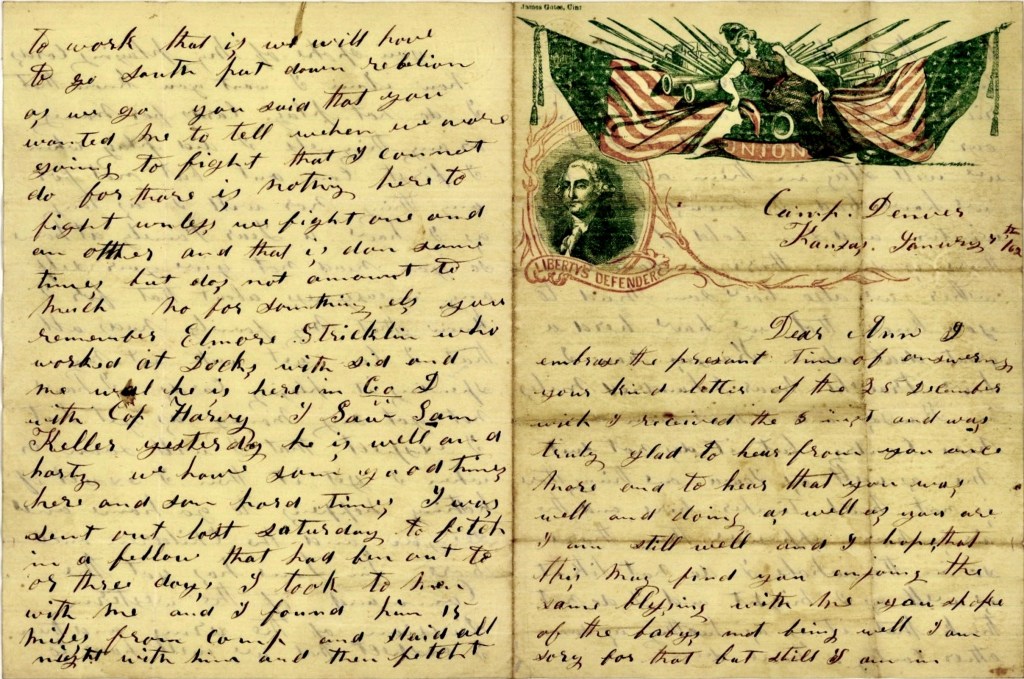 To work that is we will have
to go south put down rebelion
as we go you said that you
wanted me to tell when we ware
going to fight that I connot
do for thare is nothing here to
fight unless we fight one and
an other and that is don some
times but dos not amount to
much no for somthing els you
remember Elmore Stricklin who
worked at Docks with sid and
me wel he is here in Co I
with Cop Harvy I Saw Sam
Keller yesterday he is well and
harty we have som good times
here and som hard times I was
sent out last saturday to fetch
in a fellow that had ben out to
or three days I took to men
with me and I found him 15
miles from camp and staid all
night with him and then fetcht
James Gates, Cint
UNION
LIBERTY'S DEFENDER
Camp. Denver
Kansas, January 8th /62
Dear Ann I
embrase the presant time of answering
your kind letter of the 25 December
wich I received the 5 inst and was
truly glad to hear from you once
more and to hear that you was
well and doing as well as you are
I am still well and I hope that
this may find you enjoying the
same blessing with me you spoke
of the babys not being well I am
sory for that but still I am in